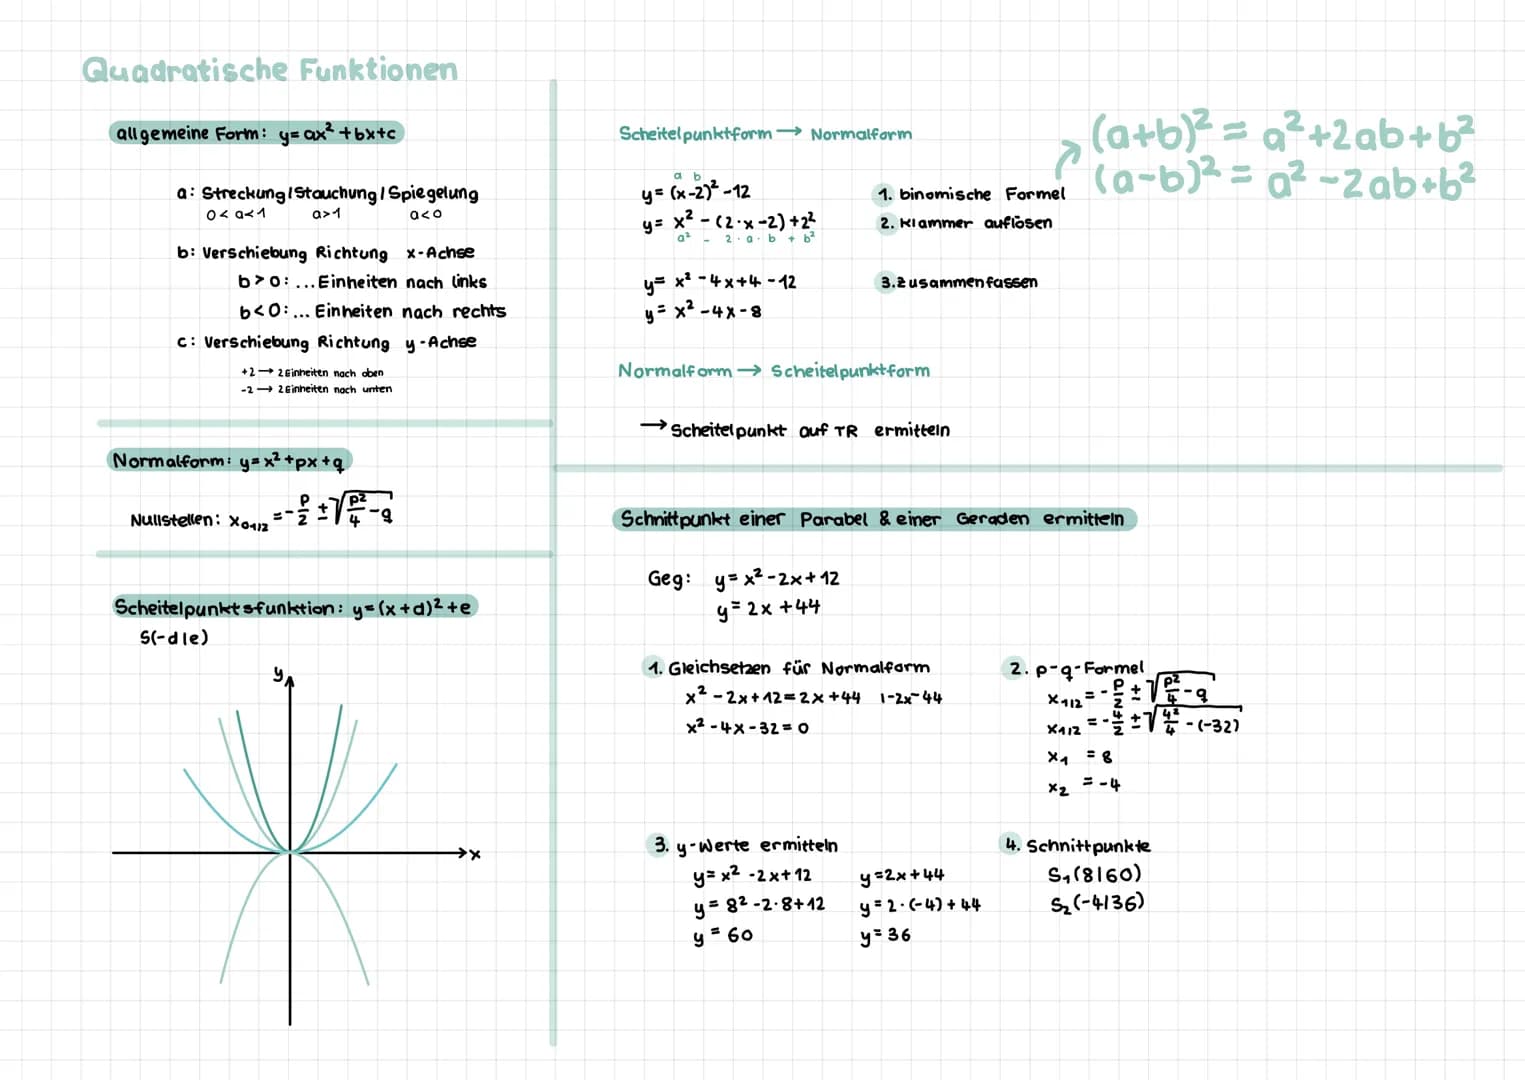 Quadratische Funktionen
allgemeine Form: y= ax² +bx+c
a: Streckung/Stauchung/Spiegelung
0< a<1 a>1 a<0
b: Verschiebung Richtung x-Achse
b>0: ...Einheiten nach links
b<0: ... Einheiten nach rechts
c: Verschiebung Richtung y-Achse
+2 → 2 Einheiten nach oben
-2 → 2 Einheiten nach unten
Normalform: y= x² +px +q
Nullstellen: x₀₁/₂ = -p/2 ± √(p²/4 -q)
Scheitelpunktsfunktion: y=(x+d)² +e
S(-d|e)
y
x
Scheitelpunktform → Normalform
a b
y= (x-2)² -12
y= x² - (2·x -2) +2²
a² - 2·a·b + b²
y= x² -4x+4 -12
y= x² -4x-8
1. binomische Formel
2. Klammer auflösen
3. Zusammenfassen
(a+b)² = a²+2ab+b²
(a-b)² = a² -2ab+b²
Normalform → Scheitelpunktform
→ Scheitelpunkt auf TR ermitteln
Schnittpunkt einer Parabel & einer Geraden ermitteln
Geg: y= x² -2x+12
y= 2x +44
1. Gleichsetzen für Normalform
x² -2x+12=2x+44 |-2x-44
x² -4x-32=0
2. p-q-Formel
x₁/₂ = -p/2 ± √(p²/4 -q)
x₁/₂ = -4/2 ± √(4²/4 -(-32))
x₁ = 8
x₂ = -4
3. y-Werte ermitteln
y= x² -2x+12 y=2x+44
y= 8² -2·8+12 y= 2·(-4)+44
y= 60 y= 36
4. Schnittpunkte
S₁(8|60)
S₂(-4|36)